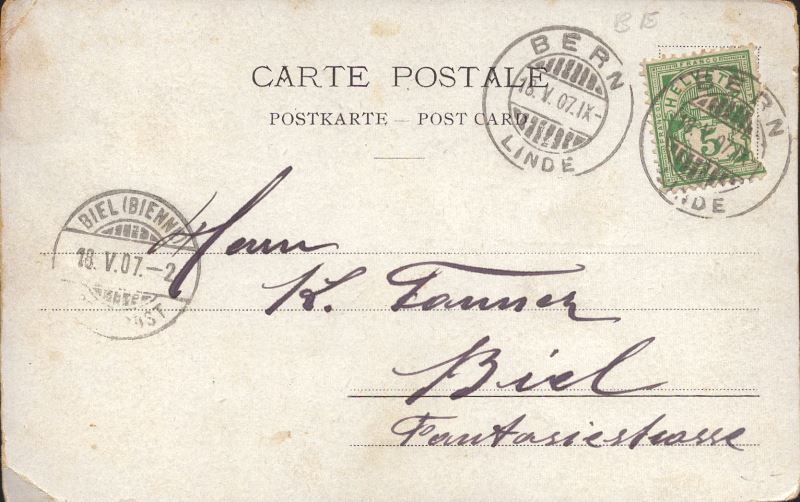 BE
CARTE POSTALE
POSTKARTE — POST CARD
BERN
18.V.07.IX-
LINDE
FRANCO
HELVETIA
5
BERN
LINDE
BIEL (BIENNE)
18.V.07.-2
Herrn
K. Tanner
Biel
Fantasiestrasse